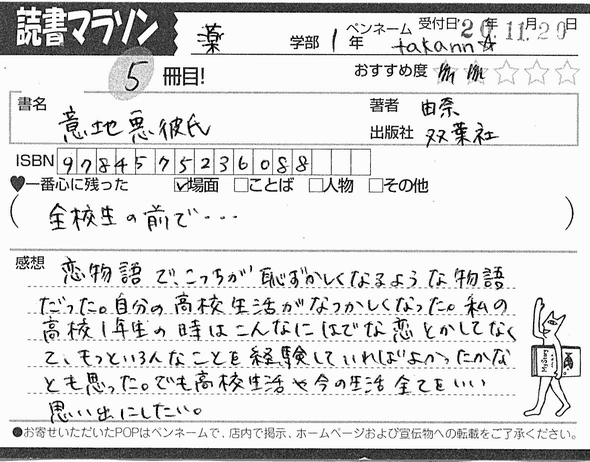 読書マラソン
薬 学部 1年 ペンネーム takann☆ 受付日 20年11月20日
5 冊目! おすすめ度 ☆☆☆☆☆
書名 意地悪彼氏
著者 由奈
出版社 双葉社
ISBN 9784575236088
♥一番心に残った ☑場面 □ことば □人物 □その他
(全校生の前で・・・)
感想 恋物語で、こっちが恥ずかしくなるような物語
だった。自分の高校生活がなつかしくなった。私の
高校1年生の時はこんなにはでな恋とかしてなく
て、もっといろんなことを経験していればよかったかな
とも思った。でも高校生活や今の生活全てをいい
思い出にしたい。
●お寄せいただいたPOPはペンネームで、店内で掲示、ホームページおよび宣伝物への転載をご了承ください。